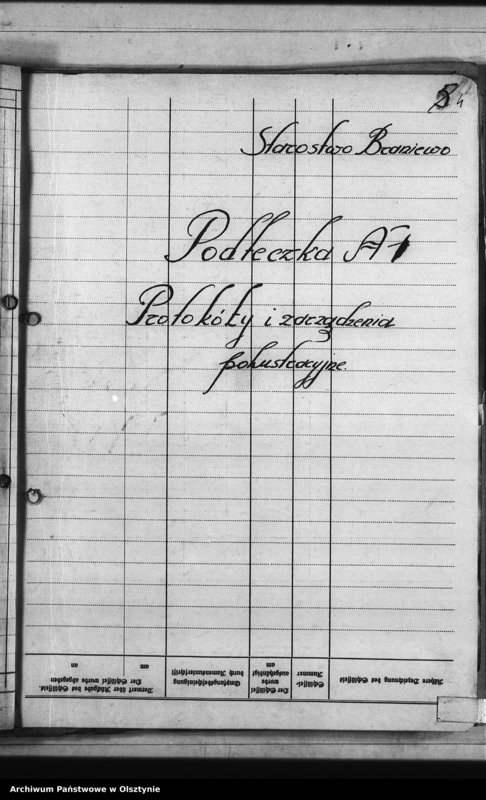 4
Starostwo Braniewo
Podteczka A 1
Protokóły i zarządzenia
polustracyjne.
Nähere Bezeichnung des Schriftstücks
Schriftstück-
Nummer
Der Schriftstück
wurde
ausgehändigt
am
Empfangsbescheinigung
durch Namensunterschrift
Vermerk über Rückgabe des Schriftstücks.
Der Schriftstück wurde abgegeben
am an
Archiwum Państwowe w Olsztynie